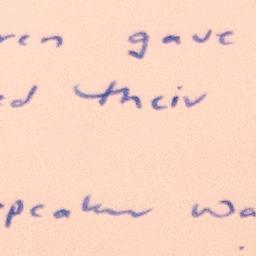 ren gave
ed their
peaker wa